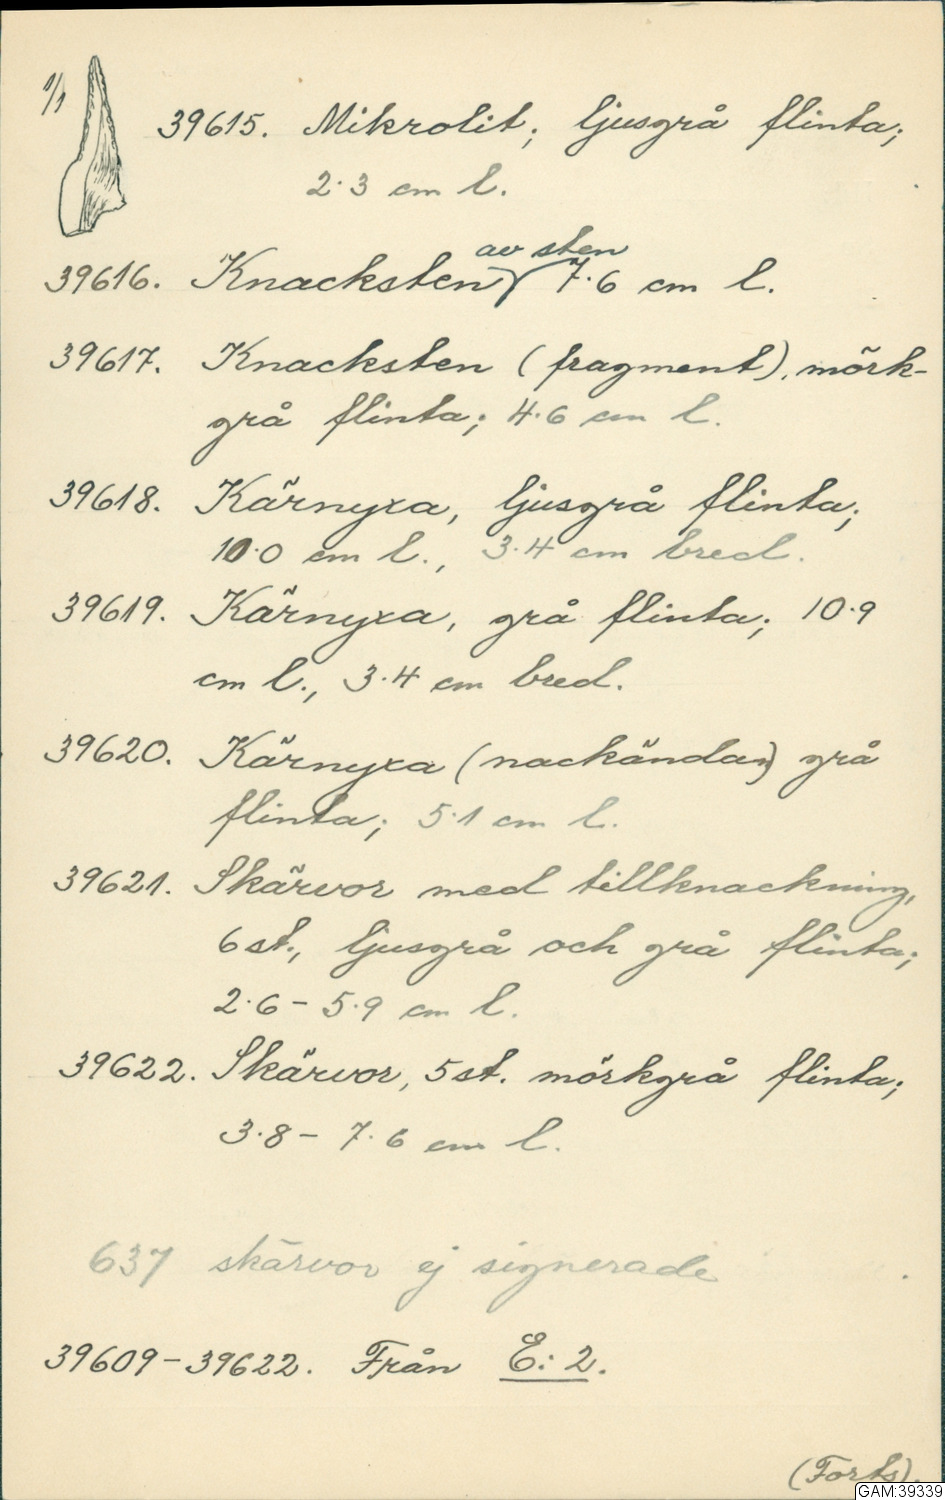 1/1
39615. Mikrolit; ljusgrå flinta;
2.3 cm l.
av sten
39616. Knacksten 7.6 cm l.
39617. Knacksten (fragment), mörk-
grå flinta; 4.6 cm l.
39618. Kärnyxa, ljusgrå flinta;
10.0 cm l., 3.4 cm bred.
39619. Kärnyxa, grå flinta; 10.9
cm l., 3.4 cm bred.
39620. Kärnyxa (nackändan) grå
flinta; 5.1 cm l.
39621. Skärvor med tillknackning,
6 st., ljusgrå och grå flinta;
2.6 – 5.9 cm l.
39622. Skärvor, 5 st. mörkgrå flinta;
3.8 – 7.6 cm l.
637 skärvor ej signerade
39609 – 39622. Från E: 2.
(Forts).
GAM:39339